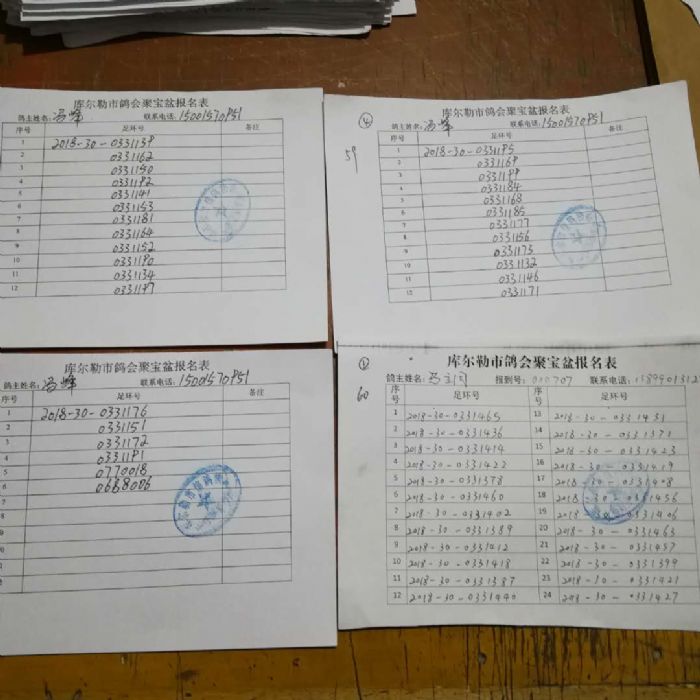 库尔勒市鸽会聚宝盆报名表
鸽主姓名: 冯峰 联系电话: 15001570951
序号 足环号 备注
1 2018-30-0331139
2 0331162
3 0331150
4 0331192
5 0331141
6 0331153
7 0331181
8 0331164
9 0331152
10 0331190
11 0331134
12 0331197
④
库尔勒市鸽会聚宝盆报名表
鸽主姓名: 冯峰 联系电话: 15001570951
59
序号 足环号 备注
1 2018-30-0331195
2 0331169
3 0331199
4 0331184
5 0331168
6 0331185
7 0331177
8 0331156
9 0331173
10 0331132
11 0331146
12 0331171
库尔勒市鸽会聚宝盆报名表
鸽主姓名: 冯峰 联系电话: 15001570951
序号 足环号 备注
1 2018-30-0331176
2 0331151
3 0331172
4 0331191
5 0770018
6 0688006
库尔勒市鸽会聚宝盆报名表
鸽主姓名: 报到号: 000707 联系电话:
60
序号 足环号 序号 足环号
1 2018-30-0331465 13 2018-30-0331431
2 2018-30-0331436 14 2018-30-0331371
3 2018-30-0331414 15 2018-30-0331423
4 2018-30-0331422 16 2018-30-0331419
5 2018-30-0331378 17 2018-30-0331408
6 2018-30-0331460 18 2018-30-0331456
7 2018-30-0331402 19 2018-30-0331406
8 2018-30-0331389 20 2018-30-0331463
9 2018-30-0331412 21 2018-30-0331457
10 2018-30-0331418 22 2018-30-0331399
11 2018-30-0331387 23 2018-30-0331421
12 2018-30-0331440 24 2018-30-0331427